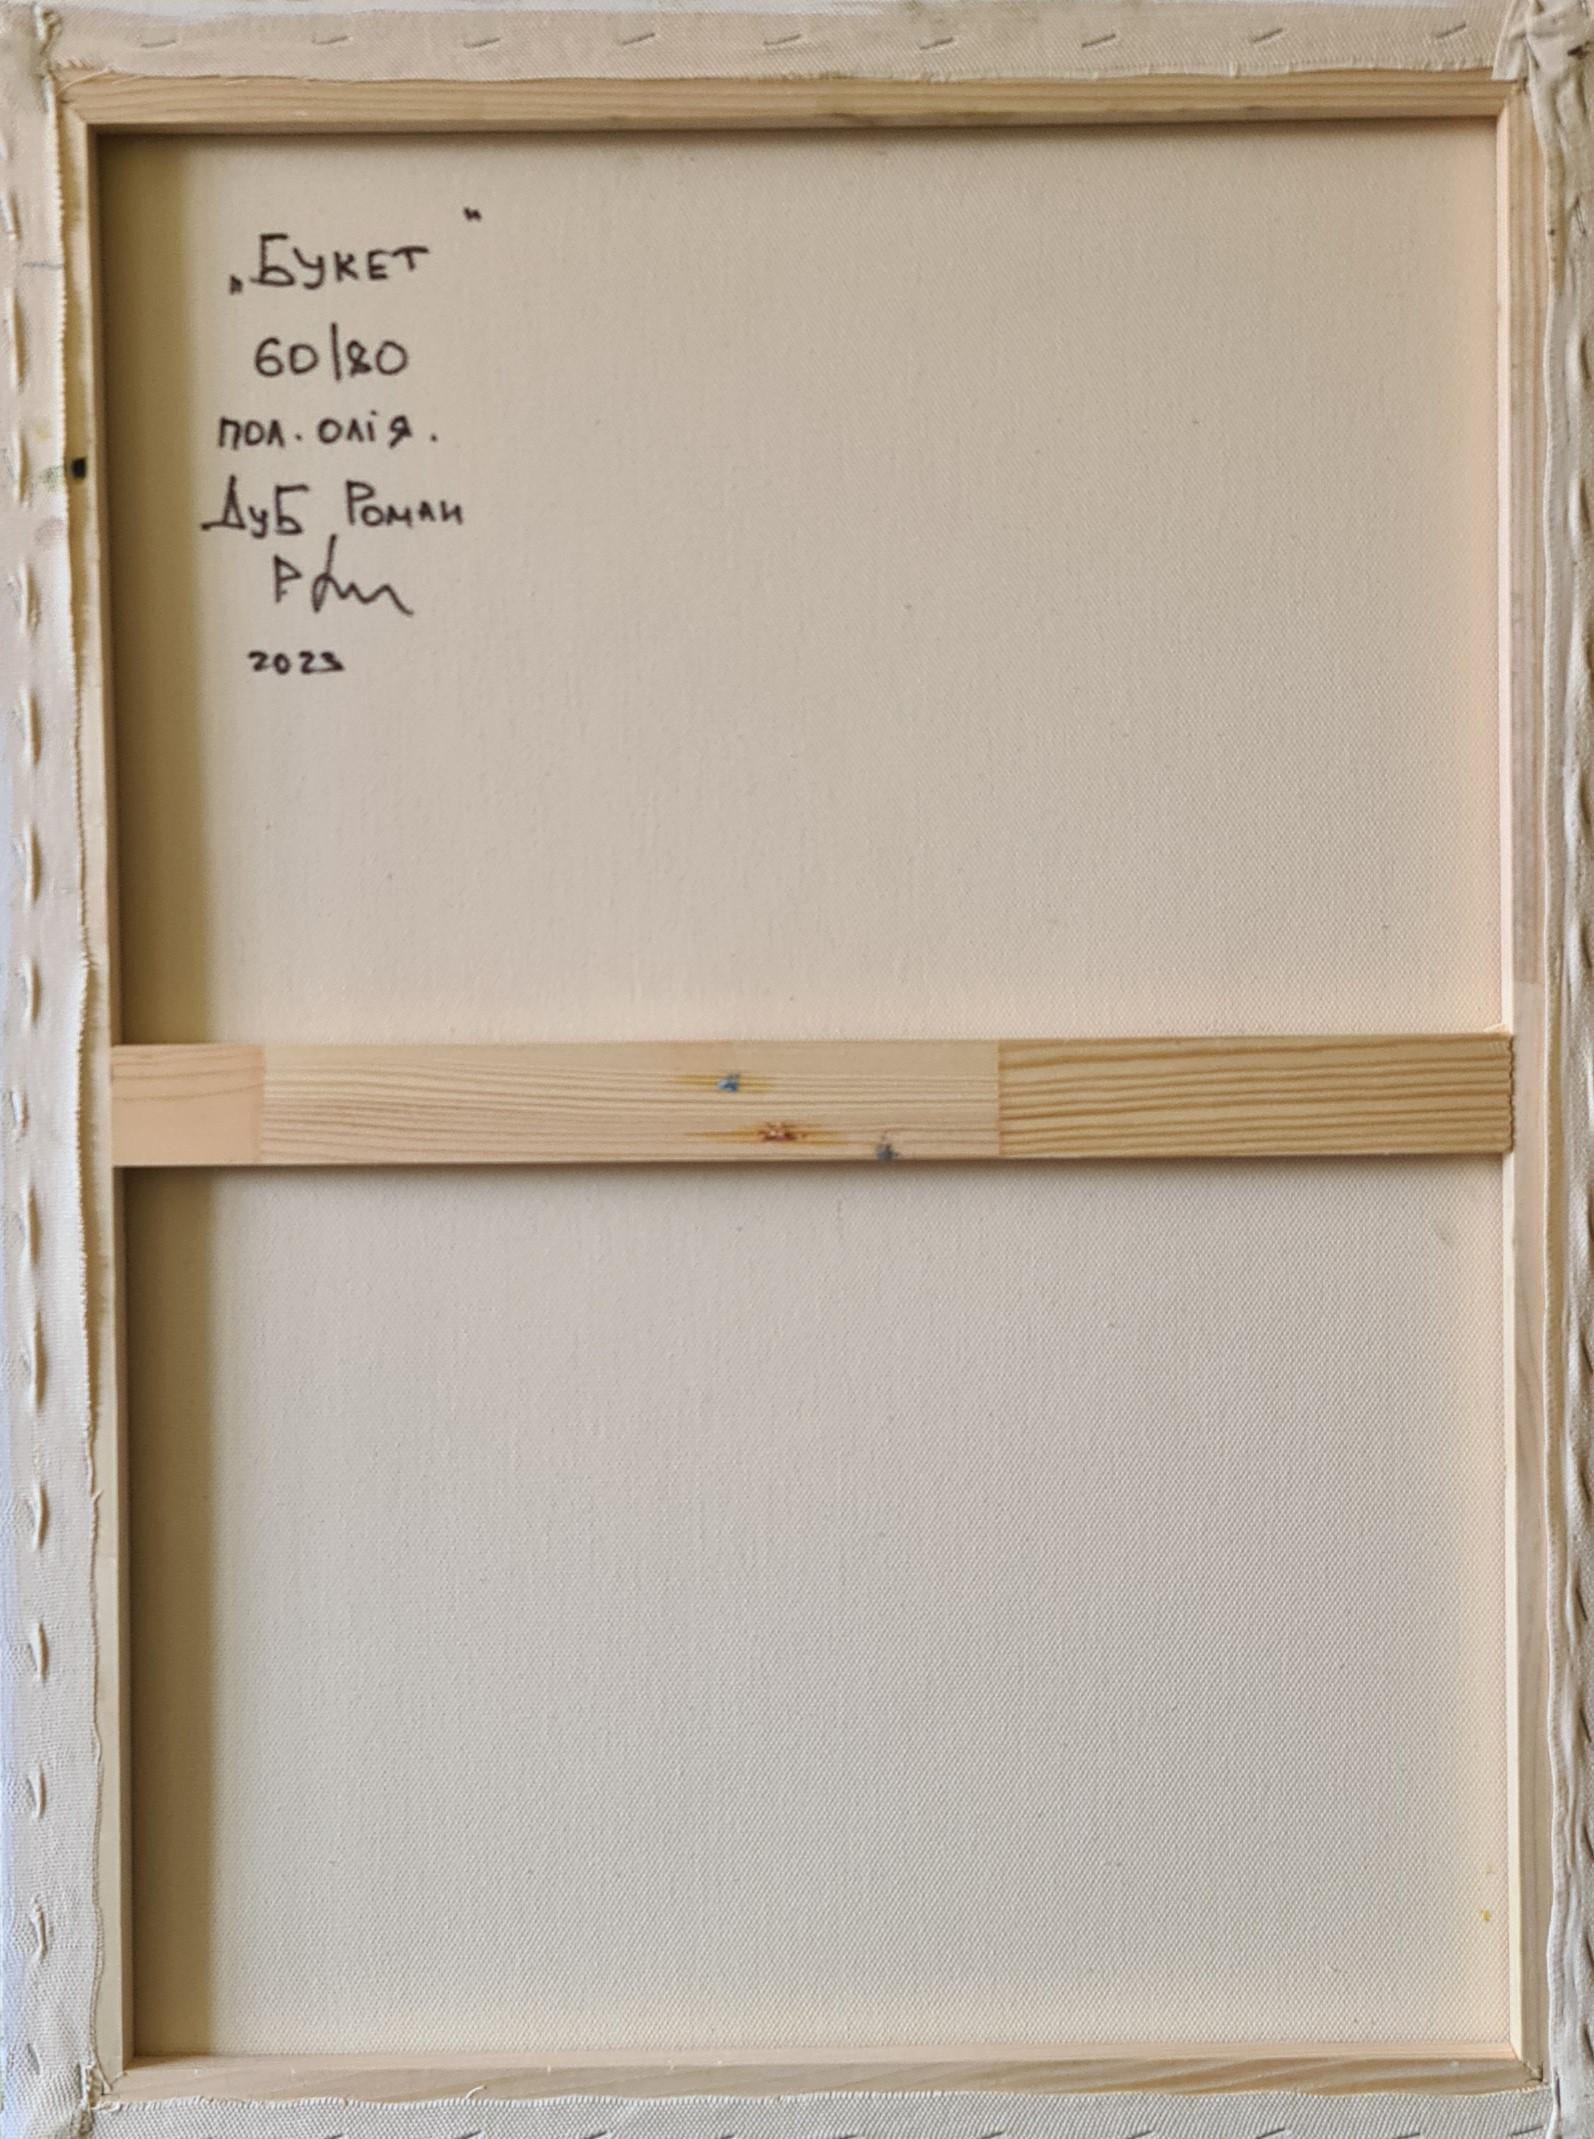 „Букет"
60/80
пол. олія.
Дуб Роман
2023